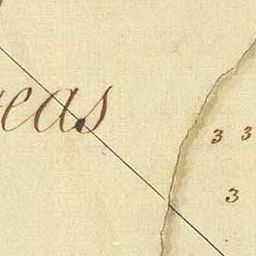 eas
3 3
3